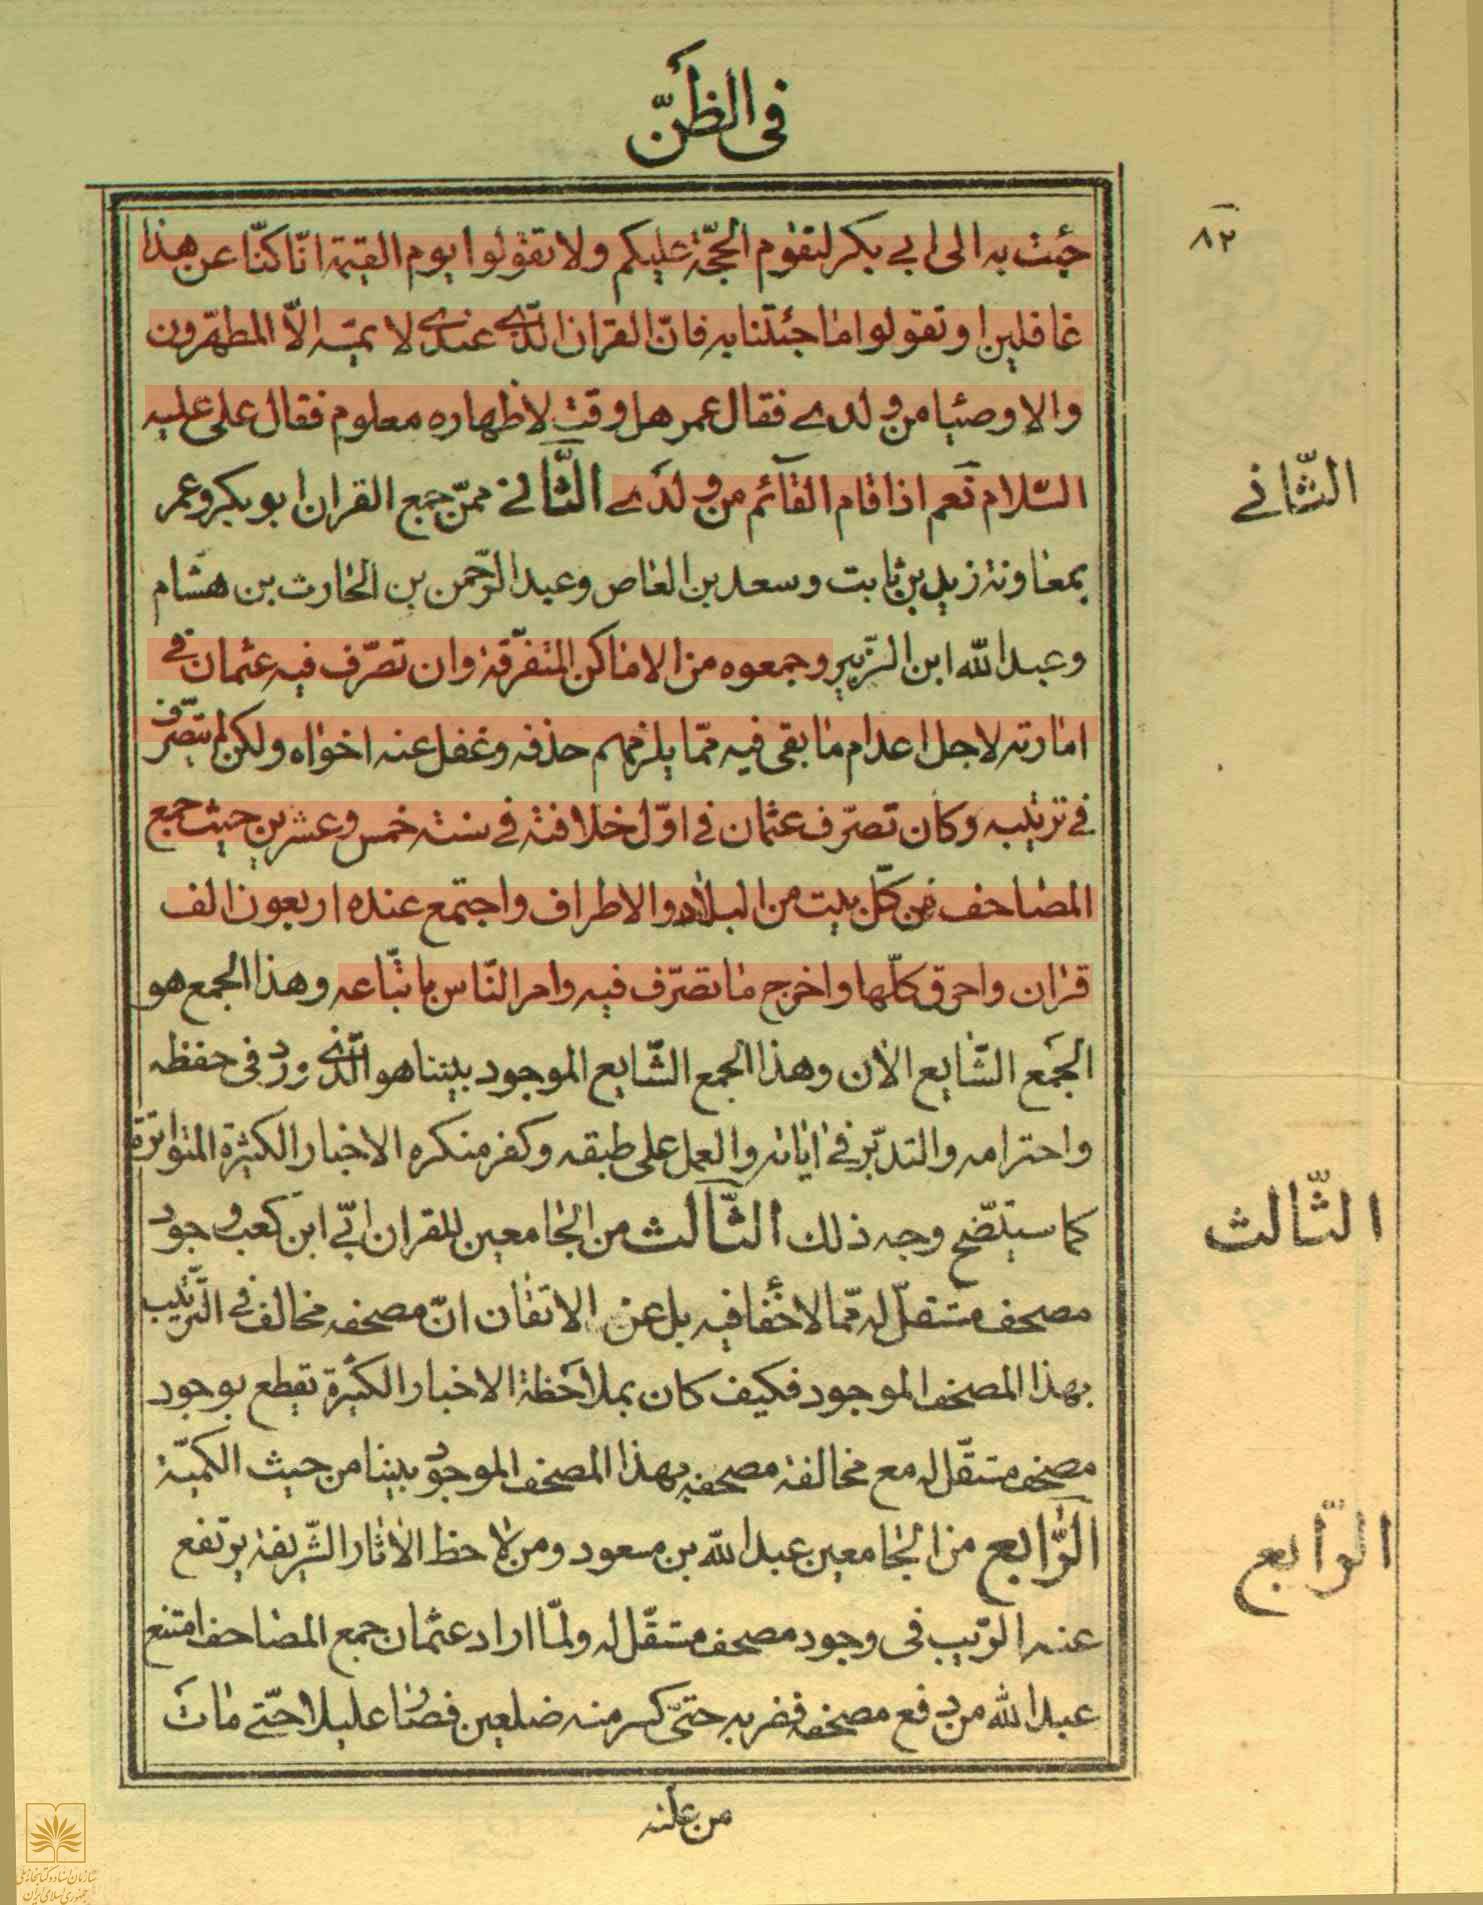 في الظنّ
٨٢
جئت به الى ابي بكر لتقوم الحجّة عليكم ولا تقولوا يوم القيمة انّا كنّا عن هذا
غافلين او تقولوا ما جئتنا به فانّ القران الّذي عندي لا يمسّه الّا المطهّرون
والاوصيا من ولدي فقال عمر هل وقت لاظهاره معلوم فقال علي عليه
السّلام نعم اذا قام القائم من ولدي الثّاني ممّن جمع القران ابو بكر وعمر
الثّاني
بمعاونة زيد بن ثابت وسعد بن العاص وعبد الرّحمن بن الحارث بن هشام
وعبد الله ابن الزّبير وجمعوه من الاماكن المتفرّقة وان تصرّف فيه عثمان في
امارته لاجل اعدام ما بقى فيه ممّا يلزمهم حذفه وغفل عنه اخواه ولكن لم يتصرّف
في ترتيبه وكان تصرّف عثمان في اوّل خلافته في سنة خمس وعشرين حيث جمع
المصاحف من كلّ بيت من البلاد والاطراف واجتمع عنده اربعون الف
قران واحرق كلّها واخرج ما تصرّف فيه وامر النّاس باتّباعه وهذا الجمع هو
الجمع الشّايع الان وهذا الجمع الشّايع الموجود بيننا هو الّذي ورد في حفظه
واحترامه والتدبّر في اياته والعمل على طبقه وكفر منكره الاخبار الكثيرة المتواترة
كما سيتضّح وجه ذلك الثّالث من الجامعين للقران ابيّ ابن كعب وجود
الثّالث
مصحف مستقلّ له ممّا لا خفا فيه بل عن الاتقان انّ مصحفه مخالف في التّرتيب
بهذا المصحف الموجود فكيف كان بملاحظة الاخبار الكثيرة تقطع بوجود
مصحف مستقلّ له مع مخالفة مصحفه بهذا المصحف الموجود بيننا من حيث الكميّة
الرّابع من الجامعين عبد الله بن مسعود ومن لاحظ الاثار الشّريفة يرتفع
الرّابع
عنه الرّيب في وجود مصحف مستقّل له ولمّا اراد عثمان جمع المصاحف امتنع
عبد الله من دفع مصحفه فضربه حتىّ كسر منه ضلعين فصار عليلا حتّى مات
من علّته
سازمان اسناد و کتابخانه ملی
جمهوری اسلامی ایران